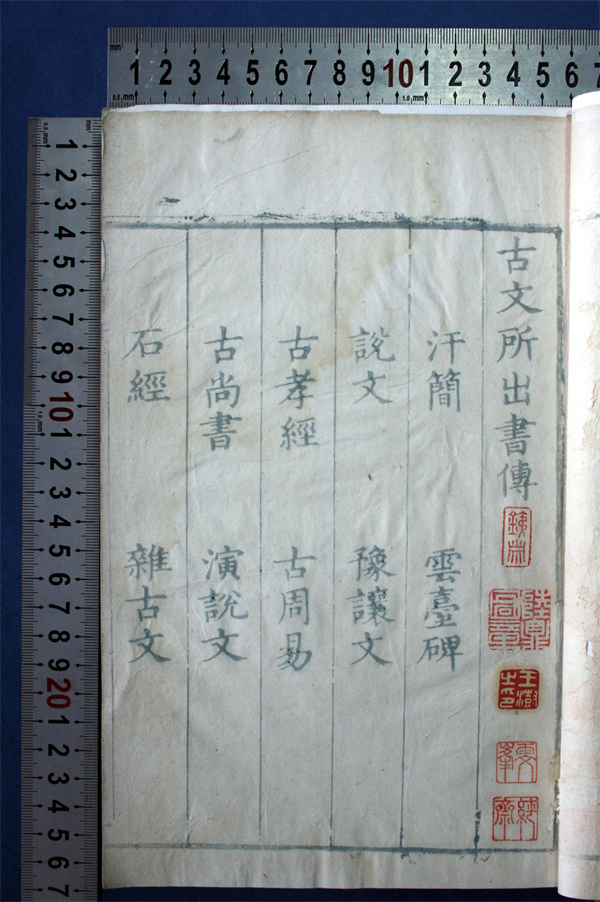 古文所出書傳
汗簡 雲臺碑
說文 豫讓文
古孝經 古周易
古尚書 演說文
石經 雜古文
王澍之印
mm 1 2 3 4 5 6 7 8 9 10 1 2 3 4 5 6 7
0.5 mm 1.0 mm
mm 1 2 3 4 5 6 7 8 9 10 1 2 3 4 5 6 7 8 9 20 1 2 3 4 5 6 7
0.5 mm 1.0 mm